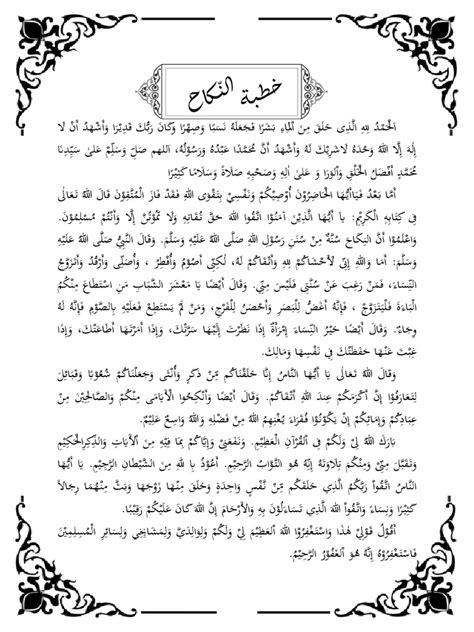 خطبة النّكاح
اَلْحَمْدُ لِلهِ الَّذِى خَلَقَ مِنَ الْمَاءِ بَشَرًا فَجَعَلَهُ نَسَبًا وَصِهْرًا وَكَانَ رَبُّكَ قَدِيْرًا وَأَشْهَدُ أَنْ لَا
إِلٰهَ إِلَّا اللهُ وَحْدَهُ لَاشَرِيْكَ لَهُ وَأَشْهَدُ أَنَّ مُحَمَّدًا عَبْدُهُ وَرَسُوْلُهُ، اللهم صَلِّ وَسَلِّمْ عَلىٰ سَيِّدِنَا
مُحَمَّدٍ أَفْضَلِ الْخَلْقِ وَالْوَرَا وَ عَلىٰ اٰلِهِ وَصَحْبِهِ صَلَاةً وَسَلَامًا كَثِيْرًا
أَمَّا بَعْدُ فَيَاأَيُّهَا الْحَاضِرُوْنَ أُوْصِيْكُمْ وَنَفْسِيْ بِتَقْوَى اللهِ فَقَدْ فَازَ الْمُتَّقُوْنَ قَالَ اللهُ تَعَالَى
فِى كِتَابِهِ الْكَرِيْمِ: يا أَيُّهَا الَّذِيْنَ آمَنُوْا اتَّقُوا اللهَ حَقَّ تُقَاتِهِ وَلَا تَمُوْتُنَّ إِلَّا وَأَنْتُمْ مُسْلِمُوْنَ.
وَاعْلَمُوْا أَنَّ النِكَاحَ سُنَّةٌ مِنْ سُنَنِ رَسُوْلِ اللهِ صَلَّى اللهُ عَلَيْهِ وَسَلَّمَ. وَقَالَ النَّبِيُّ صَلَّى اللهُ عَلَيْهِ
وَسَلَّمَ: أَمَا وَاللهِ إِنِّىْ لَأَخْشَاكُمْ لِلهِ وَأَتْقَاكُمْ لَهُ، لَكِنِّى أَصُوْمُ وَأُفْطِرُ ، وَأُصَلِّى وَأَرْقُدُ وَأَتَزَوَّجُ
النِّسَاءَ، فَمَنْ رَغِبَ عَنْ سُنَّتِى فَلَيْسَ مِنِّى. وَقَالَ أَيْضًا يَا مَعْشَرَ الشَّبَابِ مَنِ اسْتَطَاعَ مِنْكُمُ
الْبَاءَةَ فَلْيَتَزَوَّجْ ، فَإِنَّهُ أَغَضُّ لِلْبَصَرِ وَأَحْصَنُ لِلْفَرْجِ، وَمَنْ لَمْ يَسْتَطِعْ فَعَلَيْهِ بِالصَّوْمِ فَإِنَّهُ لَهُ
وِجَاءٌ. وَقَالَ أَيْضًا خَيْرُ النِّسَاءِ إِمْرَأَةٌ إِذَا نَظَرْتَ إِلَيْهَا سَرَّتْكَ، وَإِذَا أَمَرْتَهَا أَطَاعَتْكَ، وَإِذَا
غِبْتَ عَنْهَا حَفِظَتْكَ فِى نَفْسِهَا وَمَالِكَ.
وَقَالَ اللهُ تَعَالَى يَا أَيُّهَا النَّاسُ إِنَّا خَلَقْنَاكُم مِّنْ ذَكَرٍ وَأُنْثَى وَجَعَلْنَاكُمْ شُعُوْبًا وَقَبَائِلَ
لِتَعَارَفُوْا إِنَّ أَكْرَمَكُمْ عِنْدَ اللهِ أَتْقَاكُمْ. وَقَالَ أَيْضًا وَأَنْكِحُوا الْأَيَامَى مِنْكُمْ وَالصَّالِحِيْنَ مِنْ
عِبَادِكُمْ وَإِمَائِكُمْ إِنْ يَكُوْنُوْا فُقَرَاءَ يُغْنِهِمُ اللهُ مِنْ فَضْلِهِ وَاللهُ وَاسِعٌ عَلِيْمٌ.
بَارَكَ اللهُ لِيْ وَلَكُمْ فِى الْقُرْآنِ الْعَظِيْمِ. وَنَفَعَنِيْ وَإِيَّاكُمْ بِمَا فِيْهِ مِنَ الْأٰيَاتِ وَالذِّكْرِالْحَكِيْمِ
وَتَقَبَّلَ مِنِّيْ وَمِنْكُمْ تِلَاوَتَهُ إِنَّهُ هُوَ التَّوَّابُ الرَّحِيْمُ. أَعُوْذُ بِا للهِ مِنَ الشَّيْطَانِ الرَّجِيْمِ. يَا أَيُّهَا
النَّاسُ اتَّقُواْ رَبَّكُمُ الَّذِي خَلَقَكُم مِّنْ نَّفْسٍ وَاحِدَةٍ وَخَلَقَ مِنْهَا زَوْجَهَا وَبَثَّ مِنْهُمَا رِجَالاً
كَثِيْرًا وَنِسَاءً وَاتَّقُواْ اللهَ الَّذِي تَسَاءَلُوْنَ بِهِ وَالْأَرْحَامَ إِنَّ اللهَ كَانَ عَلَيْكُمْ رَقِيْبًا.
أَقُوْلُ قَوْلِيْ هٰذَا وَاسْتَغْفِرُوْا اللهَ الْعَظِيْمَ لِيْ وَلَكُمْ وَلِوَالِدَيَّ وَلِمَشَايِخِى وَلِسَائِرِ الْمُسْلِمِيْنَ
فَاسْتَغْفِرُوْهُ إِنَّهُ هُوَ الْغَفُوْرُ الرَّحِيْمُ.